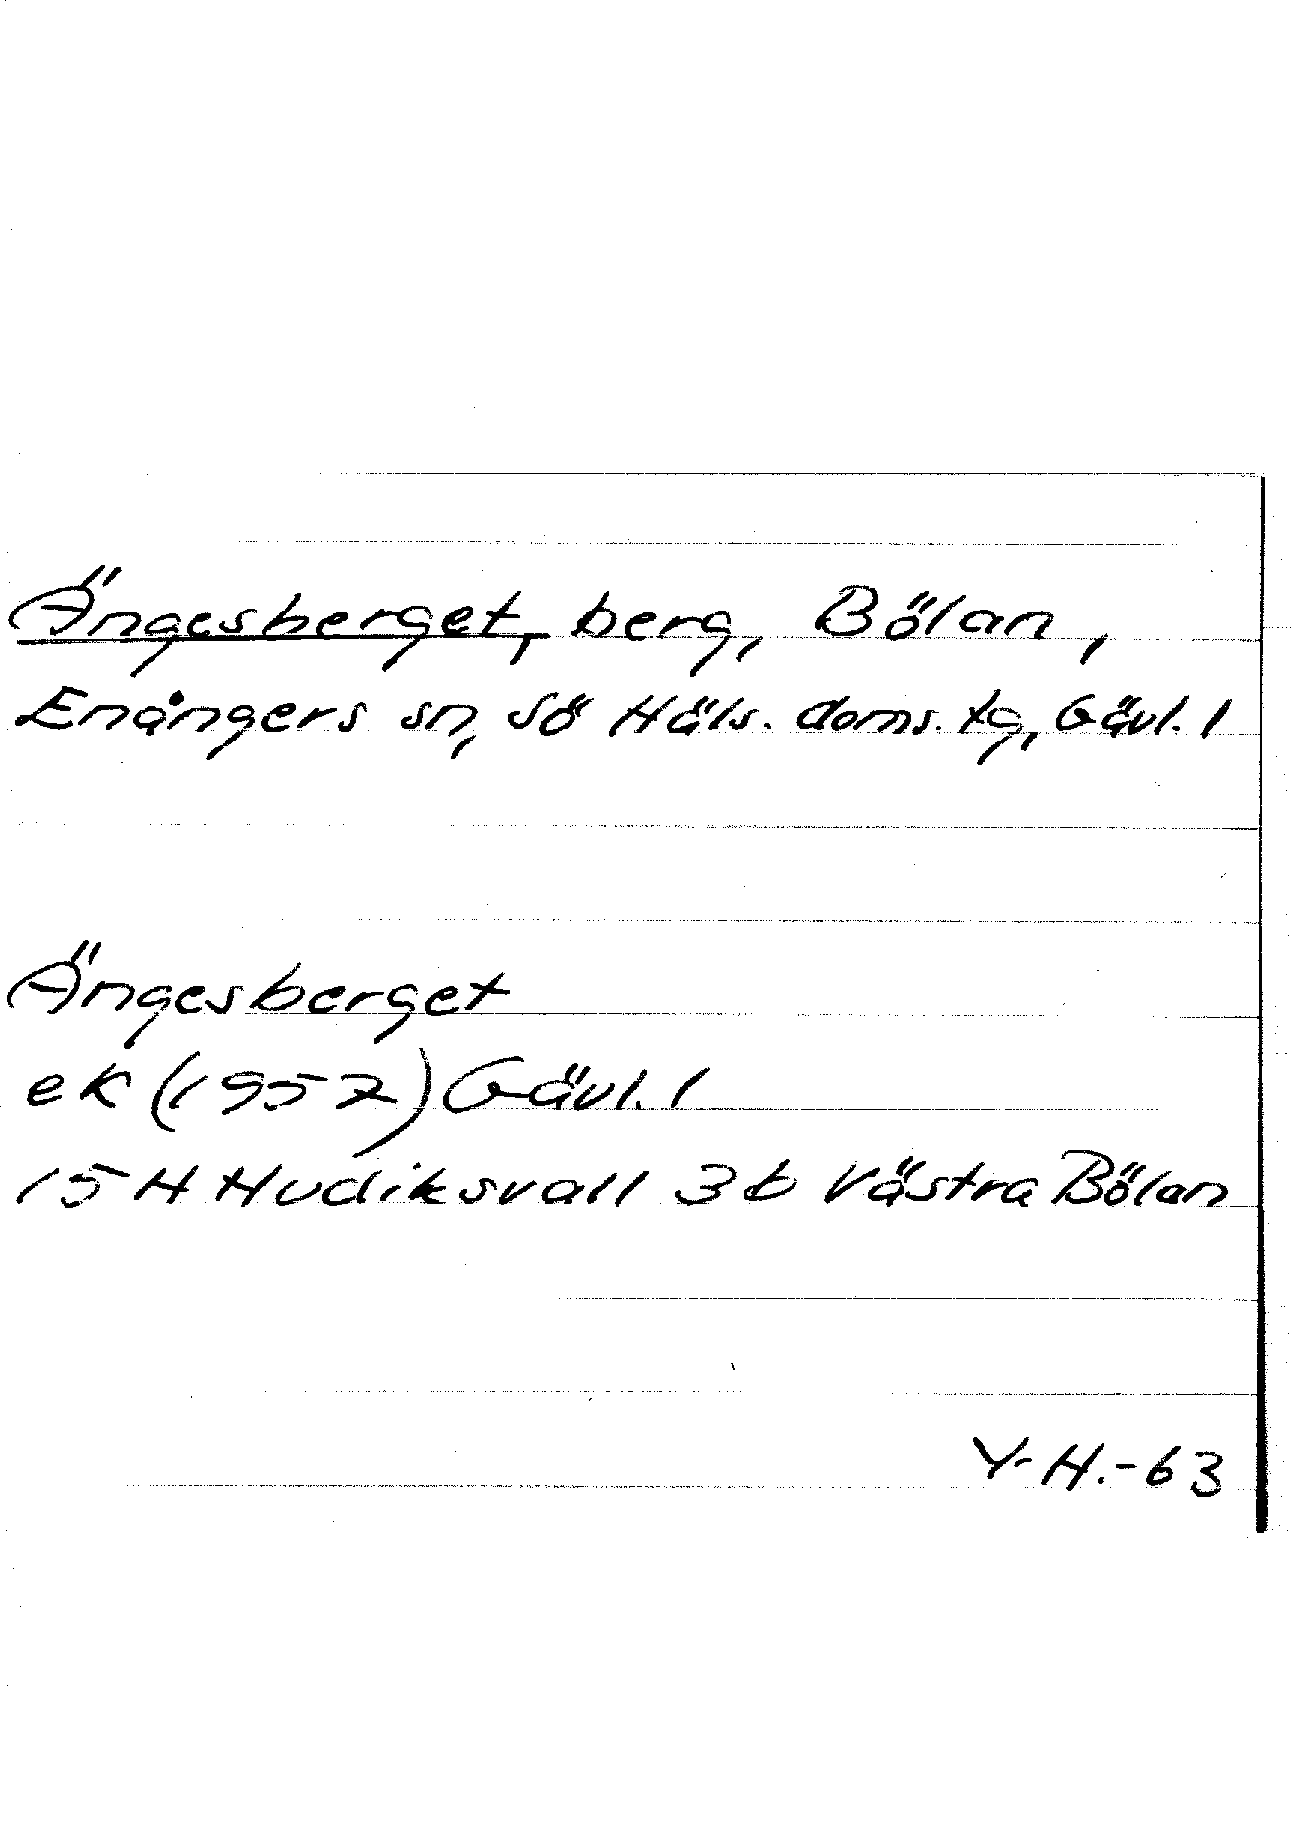 Ängesberget, berg, Bölan,
Enångers sn, Sö Häls. doms. tg, Gävl. l
Ängesberget
ek (1957) Gävl. l
15 H Hudiksvall 3 b Västra Bölan
Y-H.-63